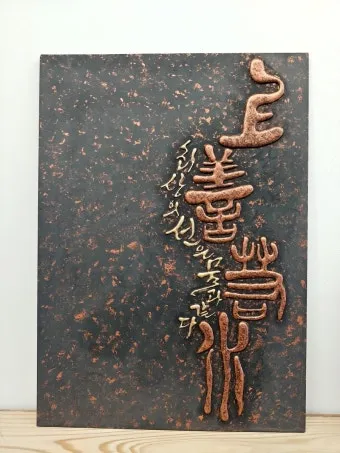 上善若水
최상의 선은 물과 같다